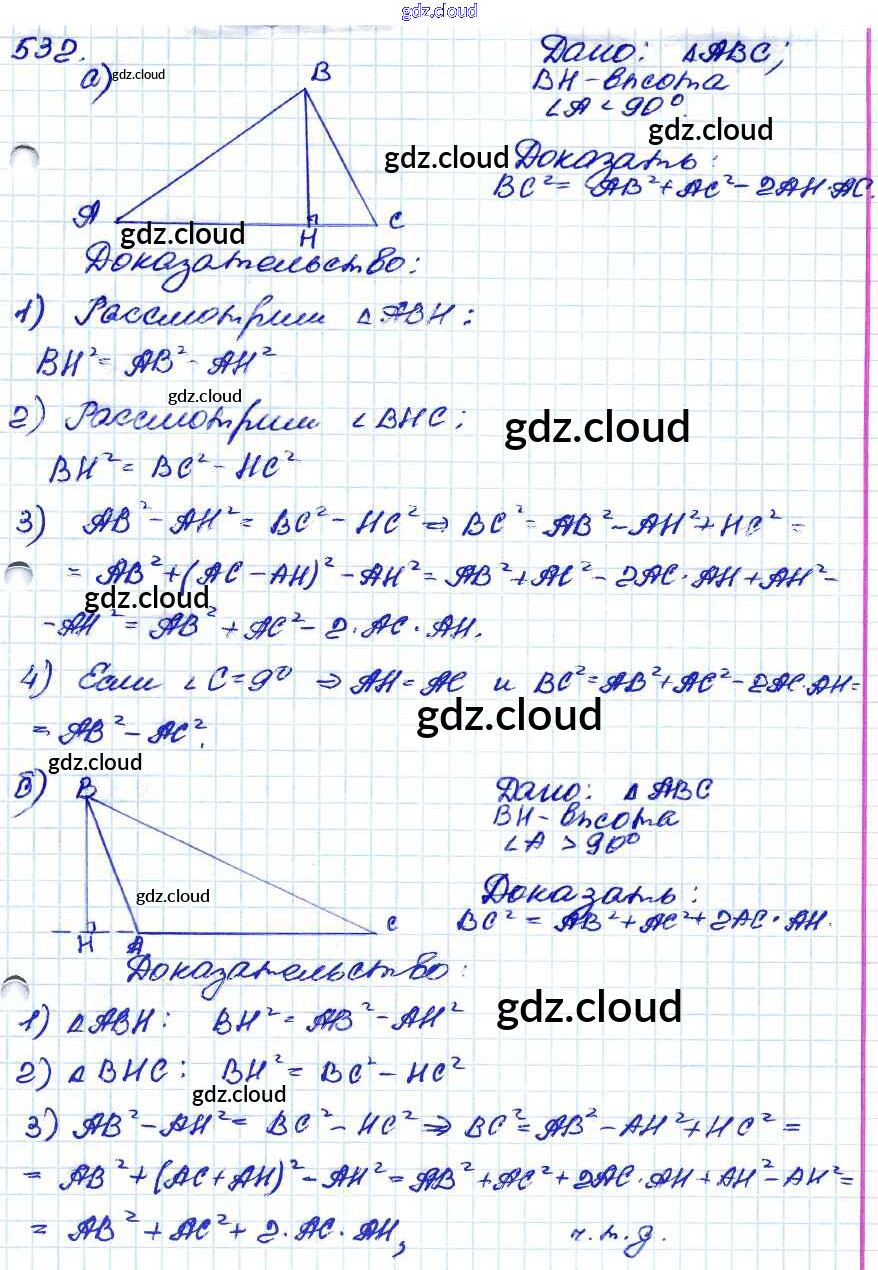 gdz.cloud
532.
а) gdz.cloud
B
A
H
C
Дано: △ABC;
BH-высота
∠A < 90°.
gdz.cloud
gdz.cloud
Доказать:
BC² = AB² + AC² - 2AH·AC.
gdz.cloud
Доказательство:
1) Рассмотрим △ABH:
BH² = AB² - AH²
gdz.cloud
2) Рассмотрим ∠BHC;
gdz.cloud
BH² = BC² - HC²
3) AB² - AH² = BC² - HC² ⇒ BC² = AB² - AH² + HC² =
= AB² + (AC - AH)² - AH² = AB² + AC² - 2AC·AH + AH² -
gdz.cloud
- AH² = AB² + AC² - 2·AC·AH.
4) Если ∠C = 9° ⇒ AH = AC и BC² = AB² + AC² - 2AC·AH =
gdz.cloud
= AB² - AC².
gdz.cloud
б)
B
H
A
C
gdz.cloud
Дано: △ABC
BH-высота
∠A > 90°
Доказать:
BC² = AB² + AC² + 2AC·AH.
Доказательство:
gdz.cloud
1) △ABH: BH² = AB² - AH²
2) △BHC: BH² = BC² - HC²
gdz.cloud
3) AB² - AH² = BC² - HC² ⇒ BC² = AB² - AH² + HC² =
= AB² + (AC + AH)² - AH² = AB² + AC² + 2AC·AH + AH² - AH² =
= AB² + AC² + 2·AC·AH, ч.т.д.